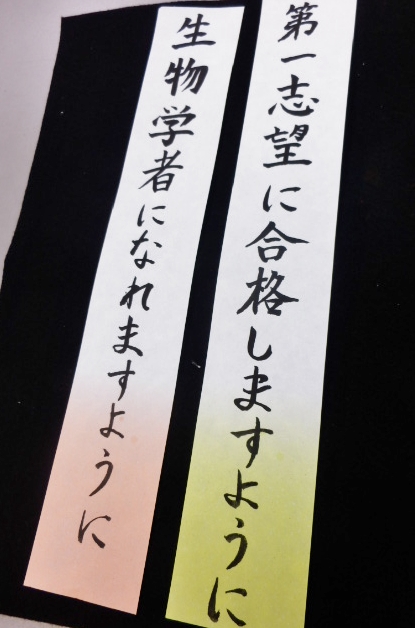 第一志望に合格しますように
生物学者になれますように